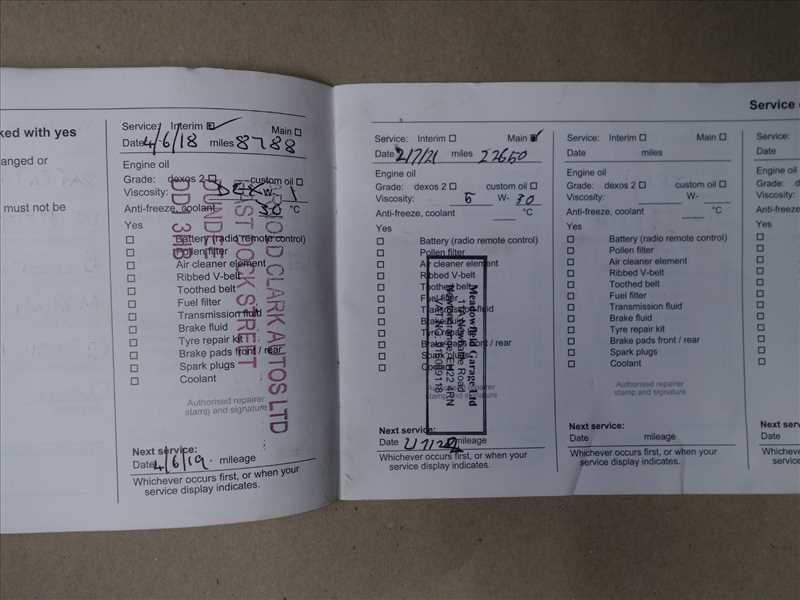 ked with yes
anged or
must not be
Service: Interim Main
Date 4/6/18 miles 8788
Engine oil
Grade: dexos 2 custom oil
Viscosity: W-
Anti-freeze, coolant 30 °C
Yes
Battery (radio remote control)
Pollen filter
Air cleaner element
Ribbed V-belt
Toothed belt
Fuel filter
Transmission fluid
Brake fluid
Tyre repair kit
Brake pads front / rear
Spark plugs
Coolant
Authorised repairer
stamp and signature
CLARK AUTOS LTD
EAST DOCK STREET
DUNDEE
DD1 3HB
Next service:
Date 4/6/19 mileage
Whichever occurs first, or when your
service display indicates.
Service
Service: Interim Main
Date 2/7/21 miles 22650
Engine oil
Grade: dexos 2 custom oil
Viscosity: 5 W- 30
Anti-freeze, coolant °C
Yes
Battery (radio remote control)
Pollen filter
Air cleaner element
Ribbed V-belt
Toothed belt
Fuel filter
Transmission fluid
Brake fluid
Tyre repair kit
Brake pads front / rear
Spark plugs
Coolant
Authorised repairer
stamp and signature
Meadowfield Garage Ltd
Road
EH22 4RN
Next service:
Date mileage
Whichever occurs first, or when your
service display indicates.
Service: Interim Main
Date miles
Engine oil
Grade: dexos 2 custom oil
Viscosity: W-
Anti-freeze, coolant °C
Yes
Battery (radio remote control)
Pollen filter
Air cleaner element
Ribbed V-belt
Toothed belt
Fuel filter
Transmission fluid
Brake fluid
Tyre repair kit
Brake pads front / rear
Spark plugs
Coolant
Authorised repairer
stamp and signature
Next service:
Date mileage
Whichever occurs first, or when your
service display indicates.
Service:
Date
Engine oil
Grade: d
Viscosity:
Anti-freeze
Yes
Next service
Date
Whichever
service d